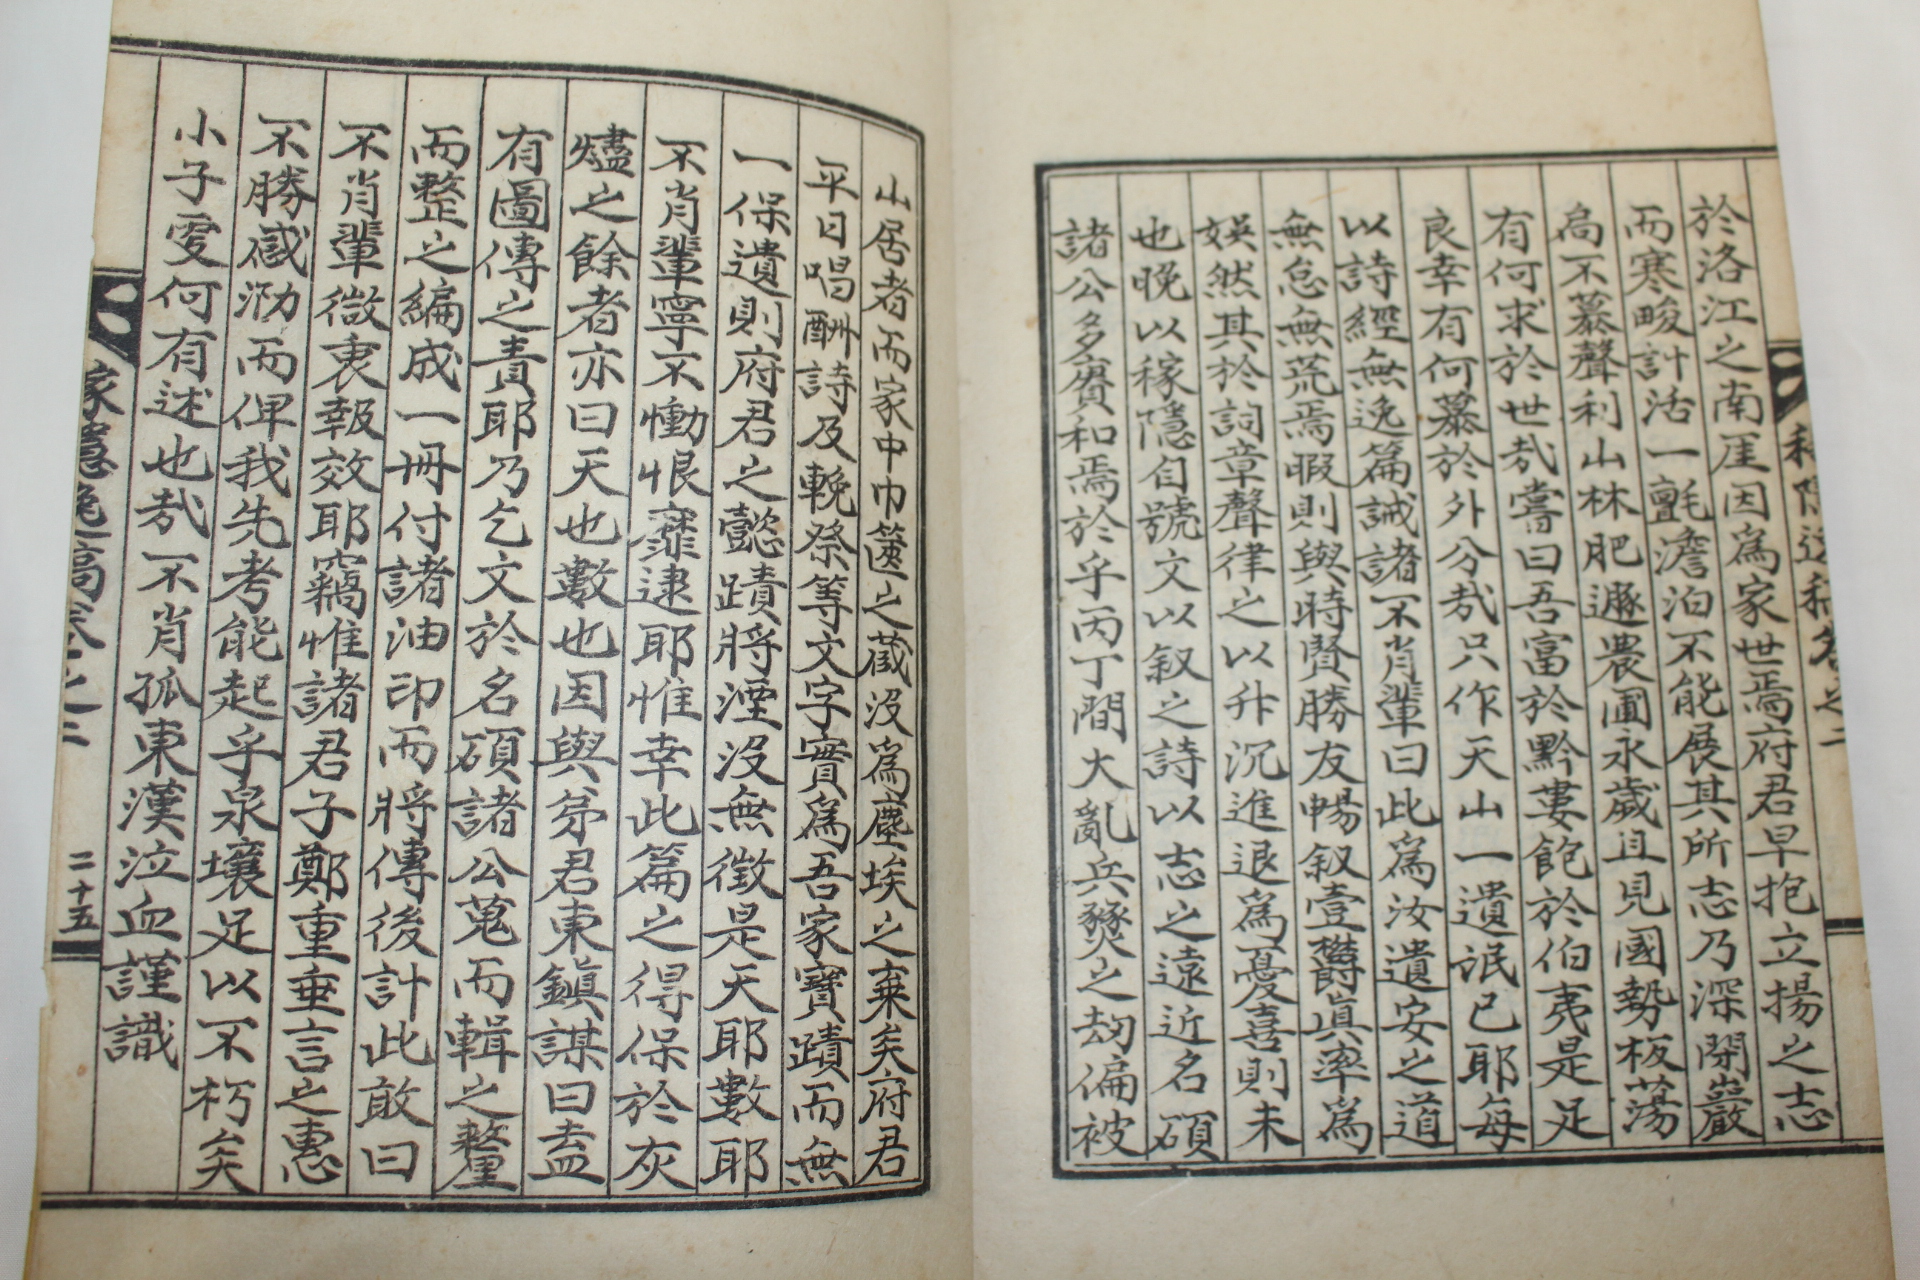 於洛江之南崖因爲家世焉府君早抱立揚之志
而寒畯計活一氈澹泊不能展其所志乃深閉巖
扄不慕聲利山林肥遯農圃永歲且見國勢板蕩
有何求於世㢤嘗曰吾富於黔婁飽於伯夷是足
良幸有何慕於外分㢤只作天山一遺氓已耶每
以詩經無逸篇誡諸不肖輩曰此爲汝遺安之道
無怠無荒焉暇則與時賢勝友暢叙壹欝眞率爲
娛然其於詞章聲律之以升沉進退爲憂喜則未
也晩以稼隱自號文以叙之詩以志之遠近名碩
諸公多賡和焉於乎丙丁間大亂兵燹之刼偏被
山居者而家中巾篋之藏沒爲塵埃之棄矣府君
平日唱酬詩及輓祭等文字實爲吾家寶蹟而無
一保遺則府君之懿蹟將湮沒無徵是天耶數耶
不肖輩寧不慟恨靡逮耶惟幸此篇之得保於灰
燼之餘者亦曰天也數也因與弟君東鎭謀曰盍
有圖傳之責耶乃乞文於名碩諸公蒐而輯之釐
而整之編成一冊付諸油印而將傳後計此敢曰
不肖輩微衷報效耶竊惟諸君子鄭重垂言之惠
不勝感泐而俾我先考能起乎泉壤足以不朽矣
小子更何有述也㢤不肖孤東漢泣血謹識
稼隱逸稿卷之二
二十五